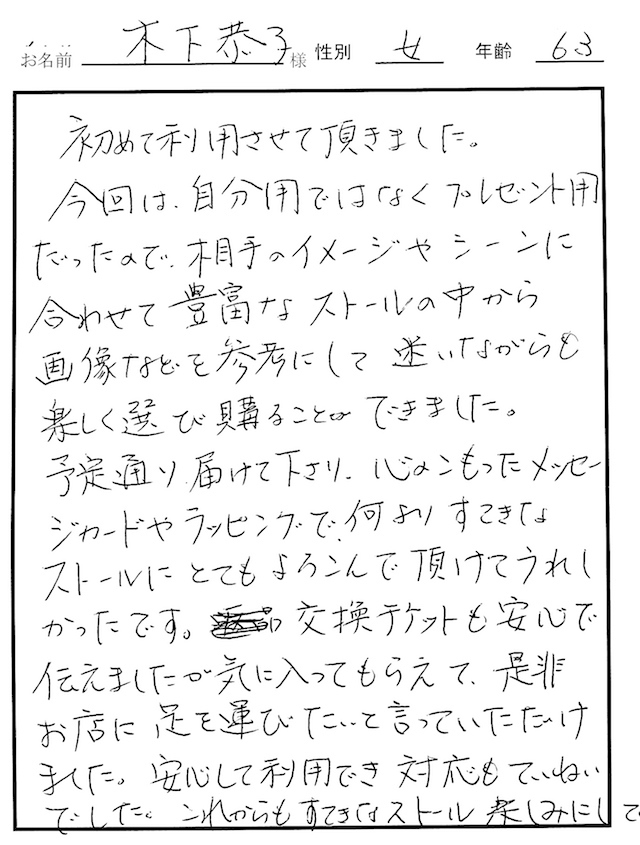 お名前 木下恭子様 性別 女 年齢 63
初めて利用させて頂きました。
今回は、自分用ではなくプレゼント用
だったので、相手のイメージやシーンに
合わせて豊富なストールの中から
画像などを参考にして迷いながらも
楽しく選び購ることができました。
予定通り届けて下さり、心のこもったメッセー
ジカードやラッピングで、何よりすてきな
ストールにとてもよろこんで頂けてうれし
かったです。交換チケットも安心で
伝えましたが気に入ってもらえて、是非
お店に足を運びたいと言っていただけ
ました。安心して利用でき対応もていねい
でした。これからもすてきなストール楽しみにして